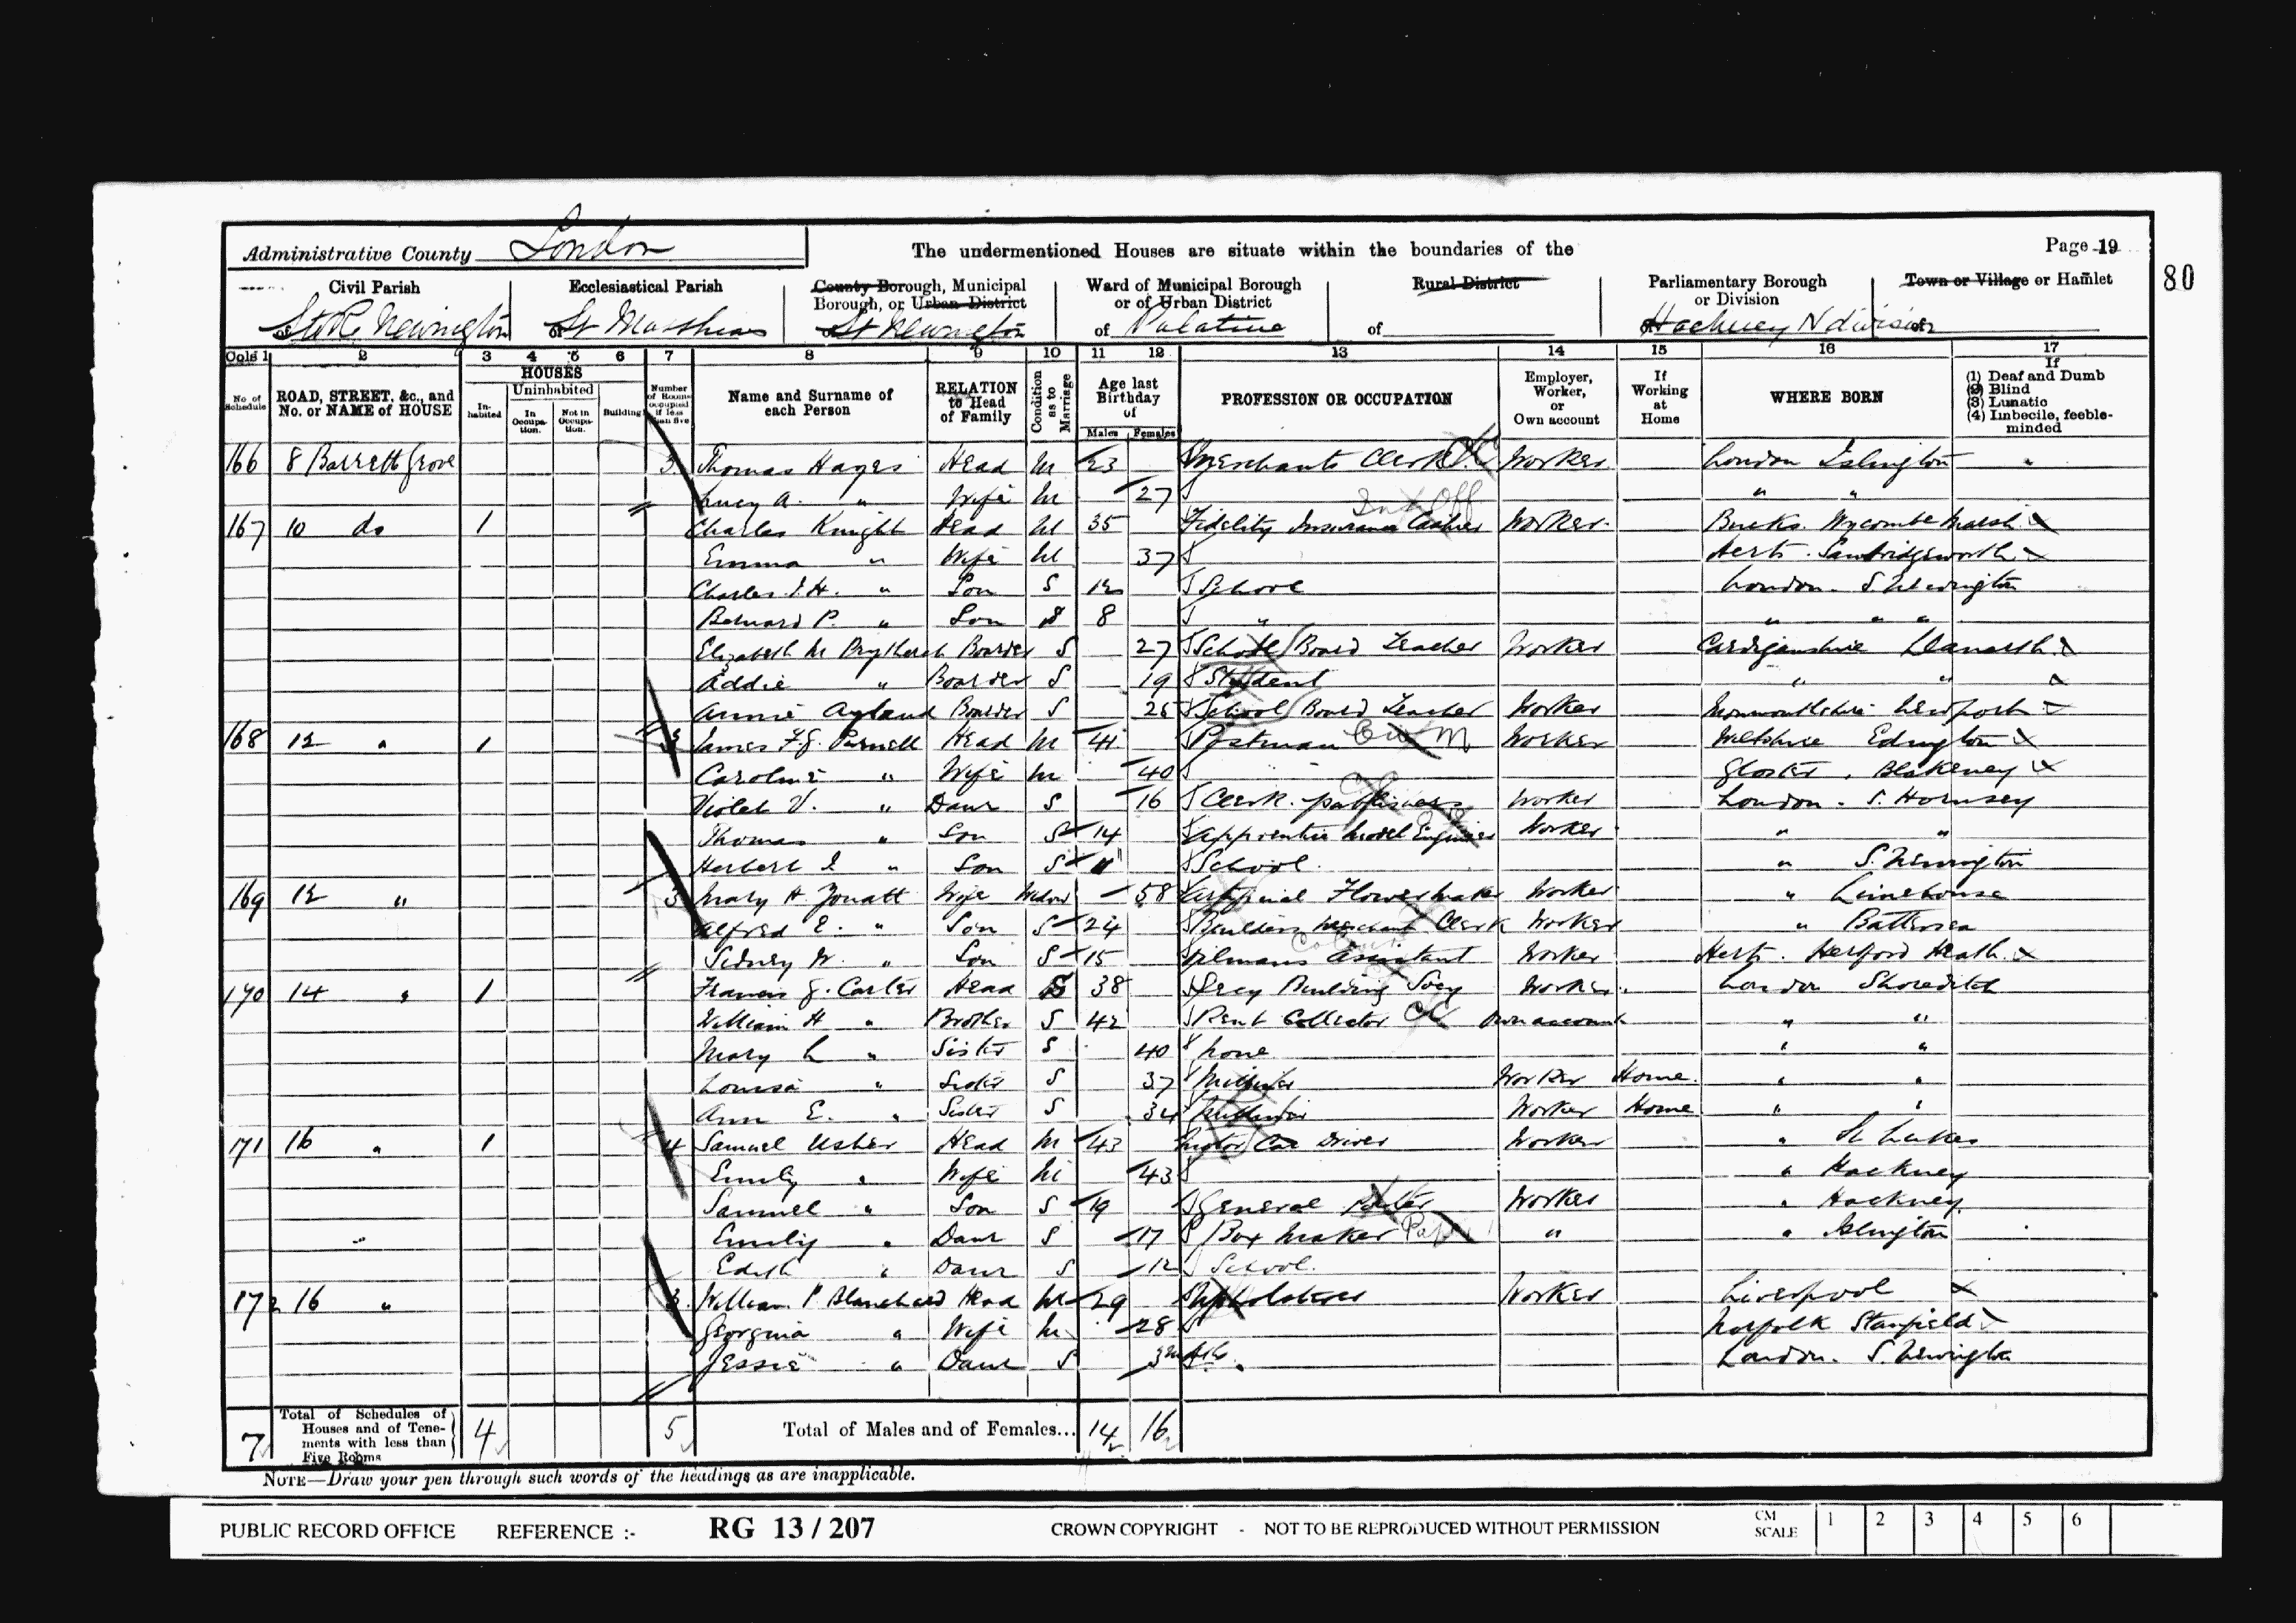 Administrative County London
The undermentioned Houses are situate within the boundaries of the
Page 19
80
Civil Parish
Ecclesiastical Parish
County Borough, Municipal Borough, or Urban District
Ward of Municipal Borough or of Urban District
Rural District
Parliamentary Borough or Division
Town or Village or Hamlet
of Stoke Newington
of St Matthias
of St Newington
of Palatine
of
of Hackney N division
of
Cols 1 2 3 4 5 6 7 8 9 10 11 12 13 14 15 16 17
No of Schedule
ROAD, STREET, &c., and No. or NAME of HOUSE
HOUSES
Inhabited
Uninhabited
In Occupation.
Not in Occupation.
Building
Number of Rooms occupied if less than five
Name and Surname of each Person
RELATION to Head of Family
Condition as to Marriage
Age last Birthday of
Males
Females
PROFESSION OR OCCUPATION
Employer, Worker, or Own account
If Working at Home
WHERE BORN
If
(1) Deaf and Dumb
(2) Blind
(3) Lunatic
(4) Imbecile, feeble-minded
166 8 Barrett Grove 3 Thomas Hayes Head M 23 Merchants Clerk Worker London Islington
Lucy A. " Wife M 27 " "
167 10 do 1 Charles Knight Head M 35 Fidelity Insurance Cashier Worker Bucks. Wycombe Marsh
Emma " Wife M 37 Herts. Sawbridgeworth
Charles I.H. " Son S 12 School London. S. Newington
Bernard P. " Son S 8 " " " "
Elizabeth M Prytherch Boarder S 27 School Board Teacher Worker Cardiganshire Llanarth
Addie " Boarder S 19 Student " "
Annie Ayland Boarder S 25 School Board Teacher Worker Monmouthshire Newport
168 12 " 1 3 James F.G. Purnell Head M 41 Postman Worker Wiltshire Edington
Caroline " Wife M 40 Gloster. Blakeney
Violet V. " Daur S 16 Clerk. publishers Worker London. S. Hornsey
Thomas " Son S 14 Apprentice Model Engineer Worker " "
Herbert I " Son S 11 School. " S. Newington
169 12 " 3 Mary H Zouatt Wife Widow 58 Artificial Flower maker Worker " Limehouse
Alfred E. " Son S 24 Builders Merchant Clerk Worker " Battersea
Sidney W. " Son S 15 Oilmans Assistant Worker Herts. Hertford Heath.
170 14 " 1 Francis G. Carter Head S 38 Secy Building Socy Worker London Shoreditch
William H " Brother S 42 Rent Collector Own account " "
Mary L " Sister S 40 None " "
Louisa " Sister S 37 Milliner Worker Home. " "
Ann E. " Sister S 34 Milliner Worker Home " "
171 16 " 1 4 Samuel Usher Head M 43 Motor Car Driver Worker " St Lukes
Emily " Wife M 43 " Hackney
Samuel " Son S 19 General Porter Worker " Hackney
" Emily " Daur S 17 Box Maker " " Islington
Edith " Daur S 12 School.
172 16 " 3 William P Blanchard Head M 29 Upholsterer Worker Liverpool
Georgina " Wife M 28 Norfolk Stanfield
Jessie " Daur S 3 mths. London. S. Newington
7 Total of Schedules of Houses and of Tenements with less than Five Rooms 4 5 Total of Males and of Females... 14 16
NOTE—Draw your pen through such words of the headings as are inapplicable.
PUBLIC RECORD OFFICE REFERENCE :- RG 13 / 207 CROWN COPYRIGHT - NOT TO BE REPRODUCED WITHOUT PERMISSION CM SCALE 1 2 3 4 5 6